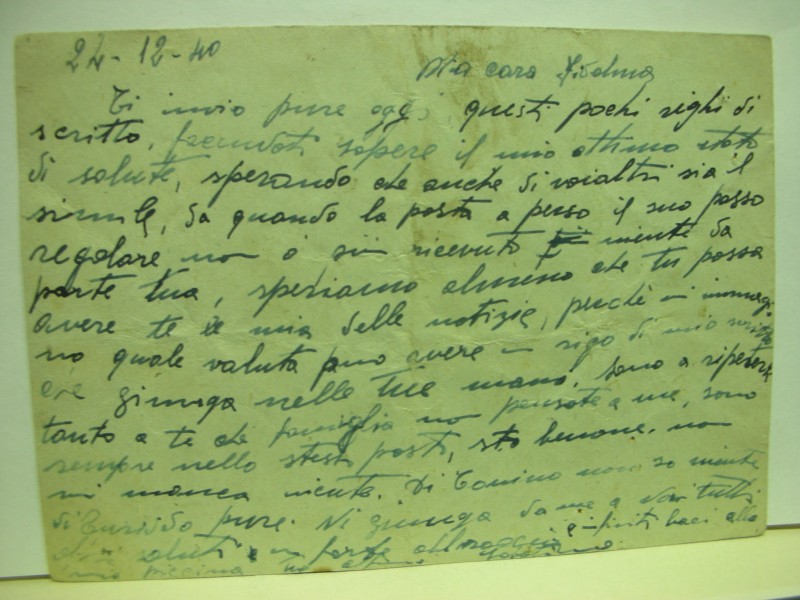 24-12-40
Mia cara
Ti invio pure oggi, questi pochi righi di
scritto, facendoti sapere il mio ottimo stato
di salute, sperando che anche di voialtri sia il
simile, da quando la posta a perso il suo passo
regolare non ò più ricevuto niente da
parte tua, speriamo almeno che tu possa
avere te le mia delle notizie, perché mi immagi-
no quale valuta può avere un rigo di mio scritto
che giunga nelle tue mani, sono a ripeterti
tanto a te che famiglia non pensate a me, sono
sempre nello stesti posti, sto benone. non
mi manca niente. Di Tonino non so niente
di pure. Vi giunga da me a voi tutti
saluti un forte infiniti baci alla
mia piccina